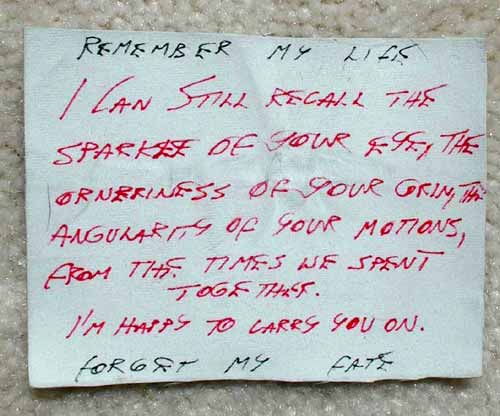 REMEMBER MY LIFE
I CAN STILL RECALL THE
SPARKLE OF YOUR EYE, THE
ORNERINESS OF YOUR GRIN, THE
ANGULARITY OF YOUR MOTIONS,
FROM THE TIMES WE SPENT
TOGETHER.
I'M HAPPY TO CARRY YOU ON.
FORGET MY FATE